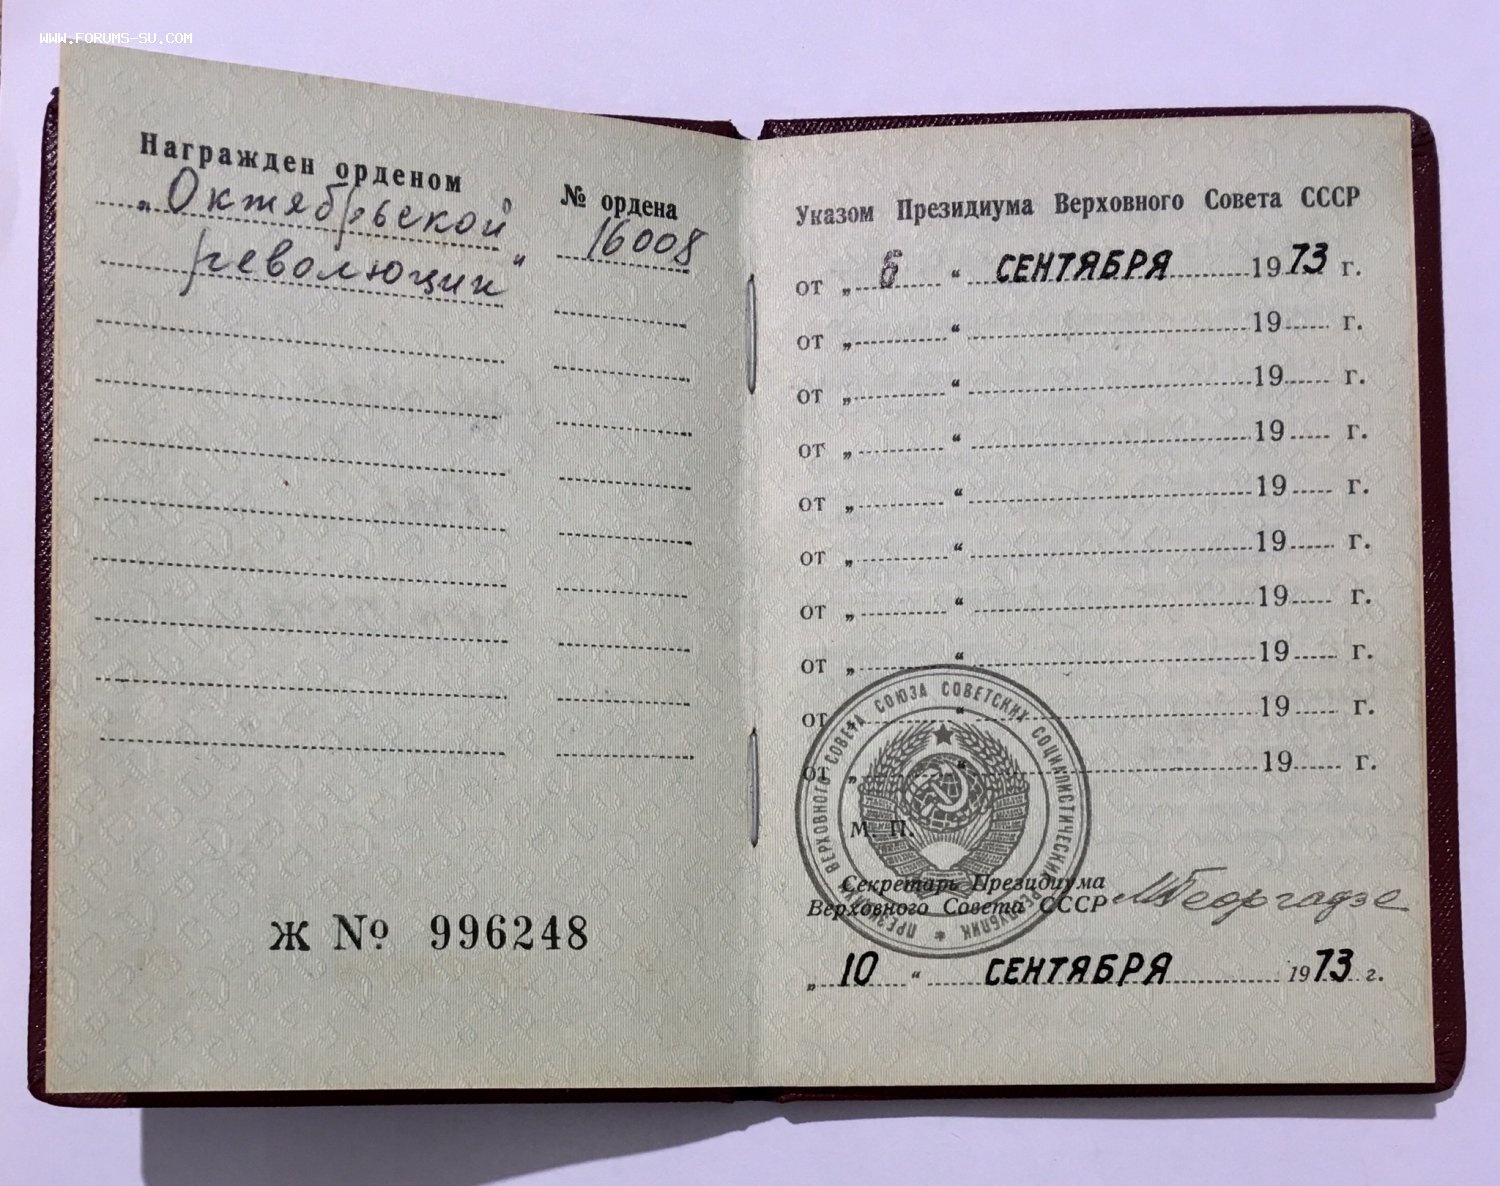 WWW.FORUMS-SU.COM
Награжден орденом
№ ордена
„Октябрьской
революции“
16008
Ж № 996248
Указом Президиума Верховного Совета СССР
от „ 6 “ СЕНТЯБРЯ 1973 г.
от „ “ 19 г.
от „ “ 19 г.
от „ “ 19 г.
от „ “ 19 г.
от „ “ 19 г.
от „ “ 19 г.
от „ “ 19 г.
от „ “ 19 г.
от „ “ 19 г.
ПРЕЗИДИУМ ВЕРХОВНОГО СОВЕТА СОЮЗА СОВЕТСКИХ СОЦИАЛИСТИЧЕСКИХ РЕСПУБЛИК
М. П.
Секретарь Президиума
Верховного Совета СССР МГеоргадзе
„ 10 “ СЕНТЯБРЯ 1973 г.